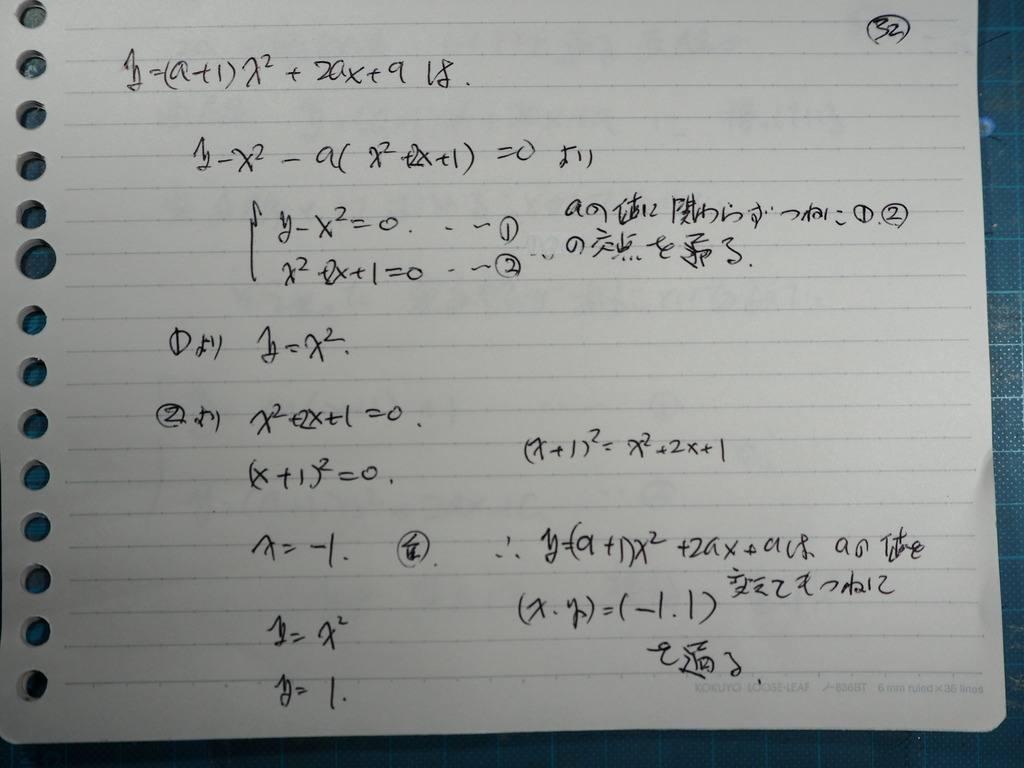 32
y=(a+1)x²+2ax+a は.
y-x²-a(x²+2x+1)=0 より
y-x²=0. --①
x²+2x+1=0 --②
aの値に関わらずつねに①.②
の交点を通る.
①より y=x².
②より x²+2x+1=0.
(x+1)²=0.
(x+1)²=x²+2x+1
x=-1.
∴ y=(a+1)x²+2ax+aは aの値を
変えてもつねに
(x.y)=(-1.1)
を通る.
y=x²
y=1.
KOKUYO LOOSE-LEAF ノ-836BT 6mm ruled×36 lines